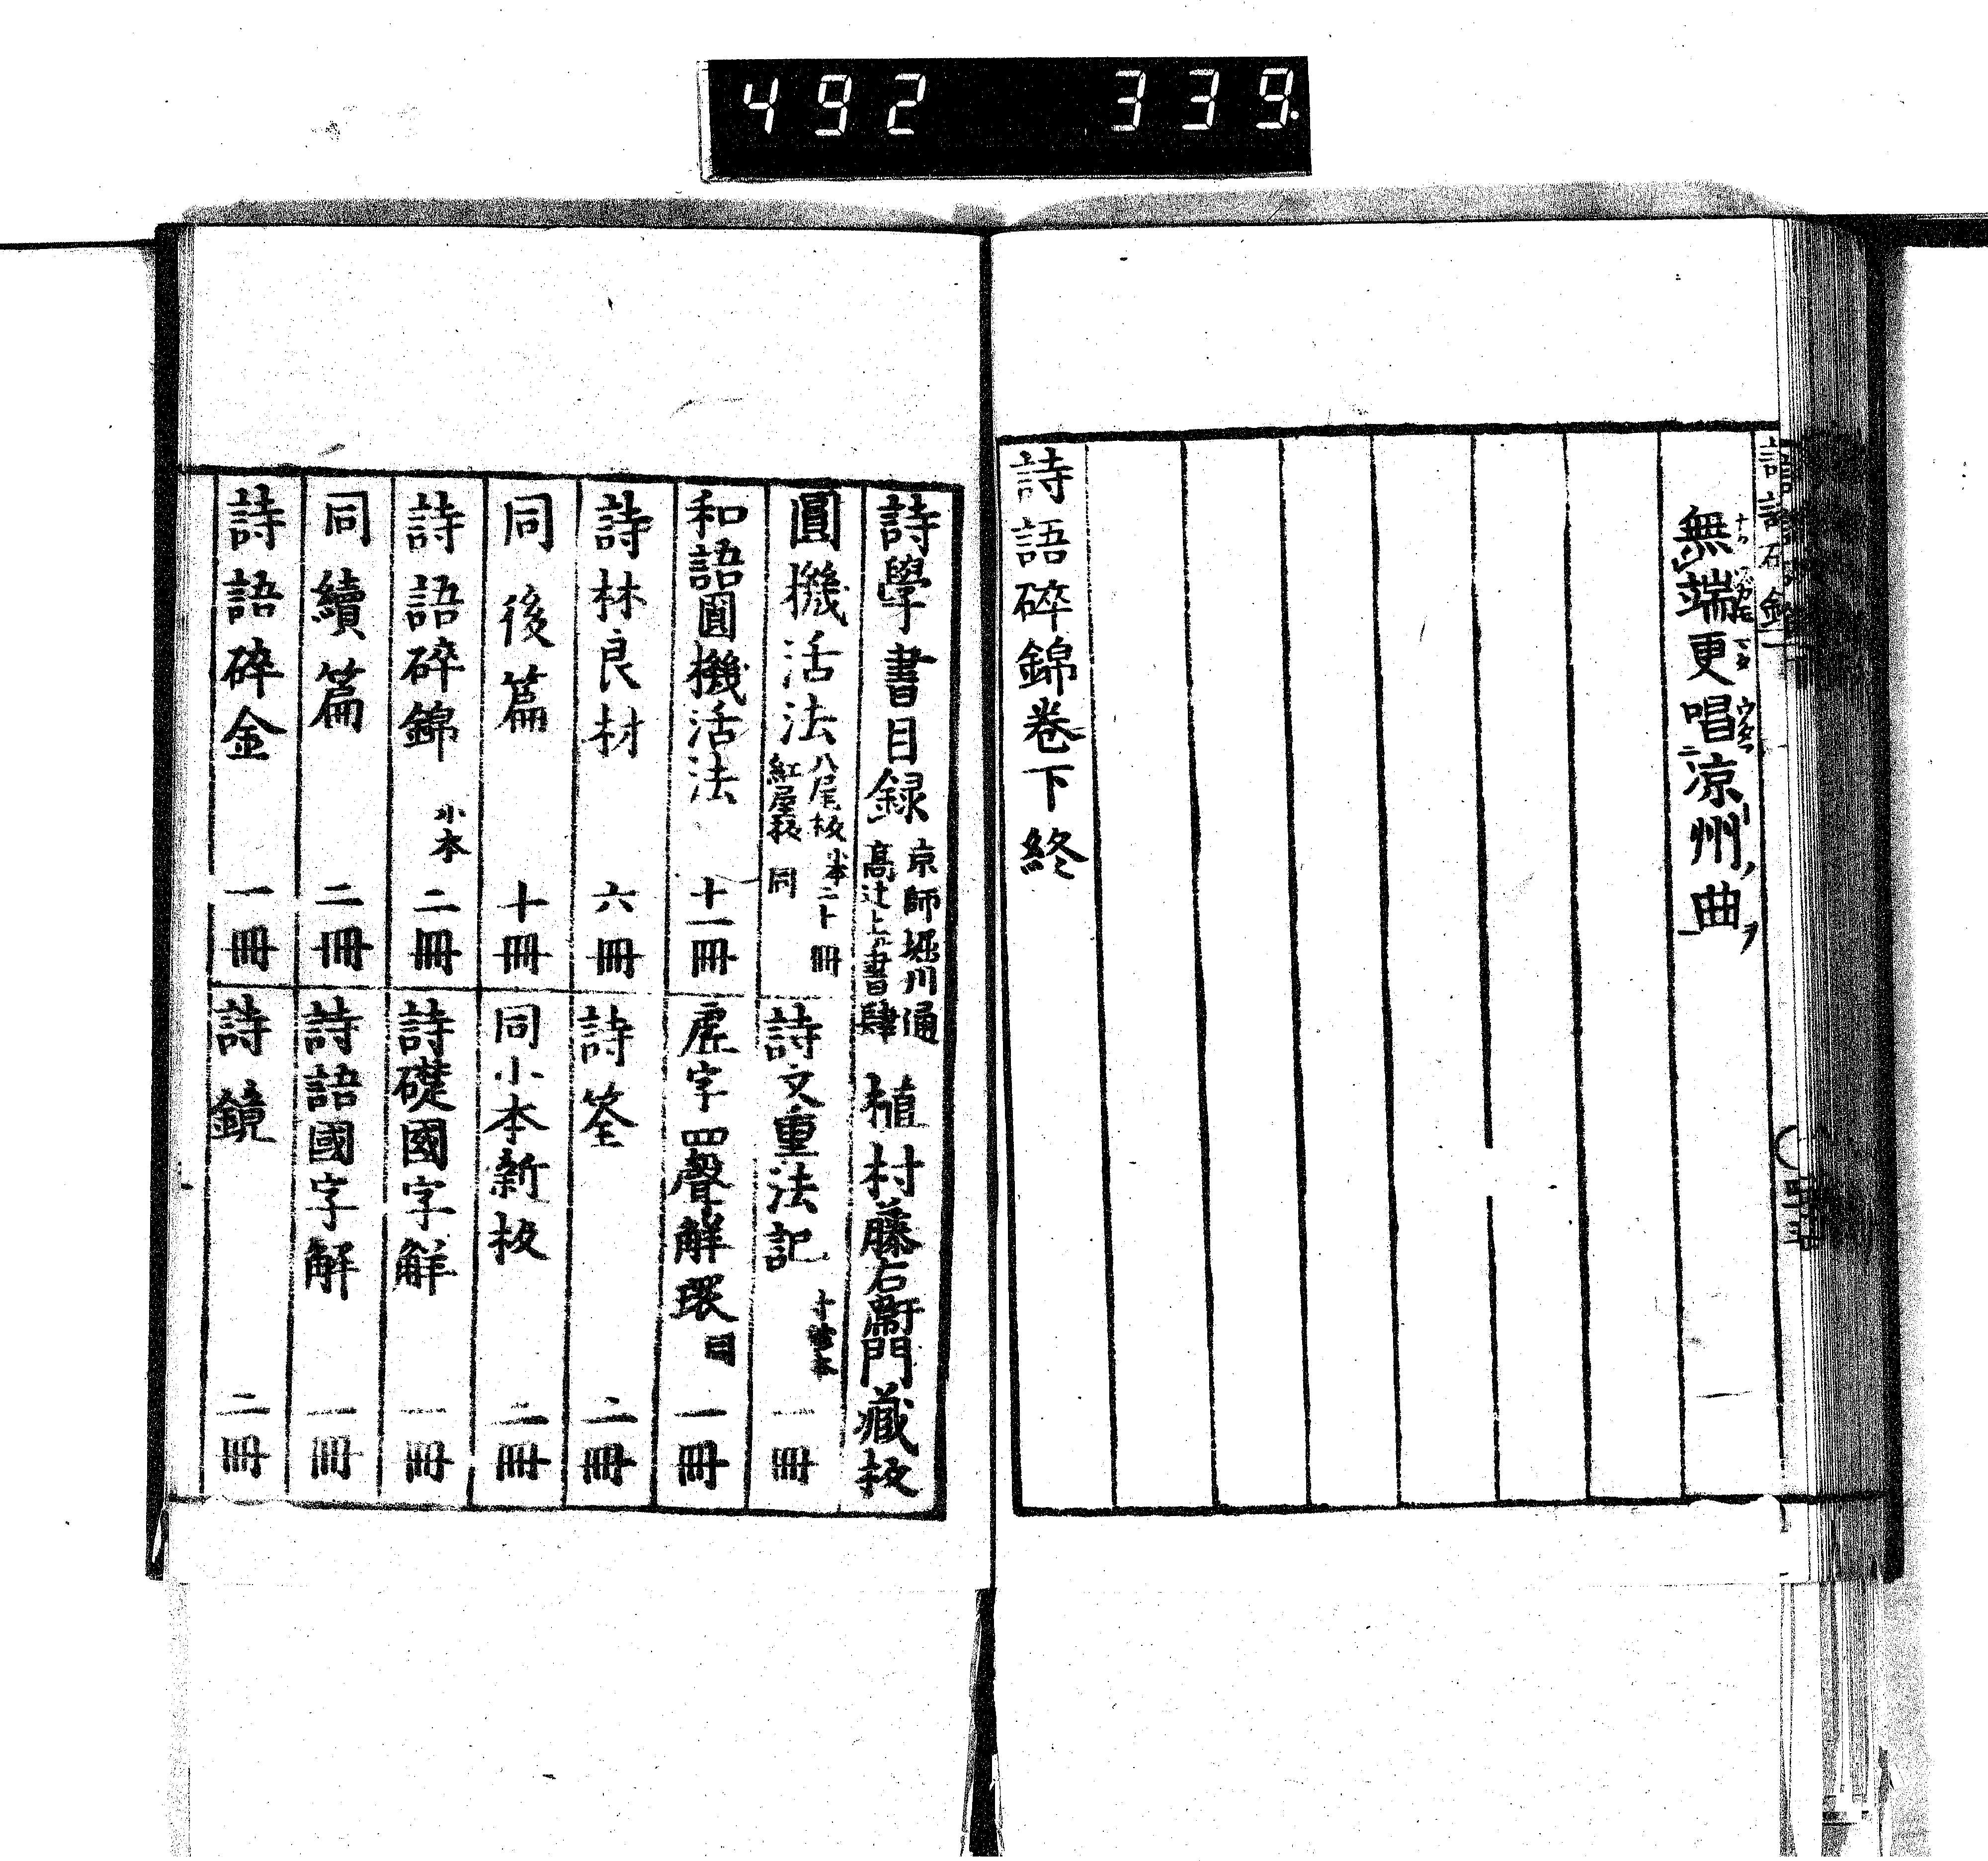 492 339.
詩語碎錦
無端更唱凉州曲
詩語碎錦卷下終
詩學書目録 京師堀川通 髙辻上ル書肆 植村藤右衛門藏板
圓機活法 八尾板 小本二十冊 紅屋板 同
詩文重法記 一冊
和語圓機活法 十一冊
虚字四聲解環 同 一冊
詩林良材 六冊
詩筌 二冊
同後篇 十冊
同小本新板 二冊
詩語碎錦 小本 二冊
詩礎國字解 一冊
同續篇 二冊
詩語國字解 一冊
詩語碎金 一冊
詩鏡 二冊